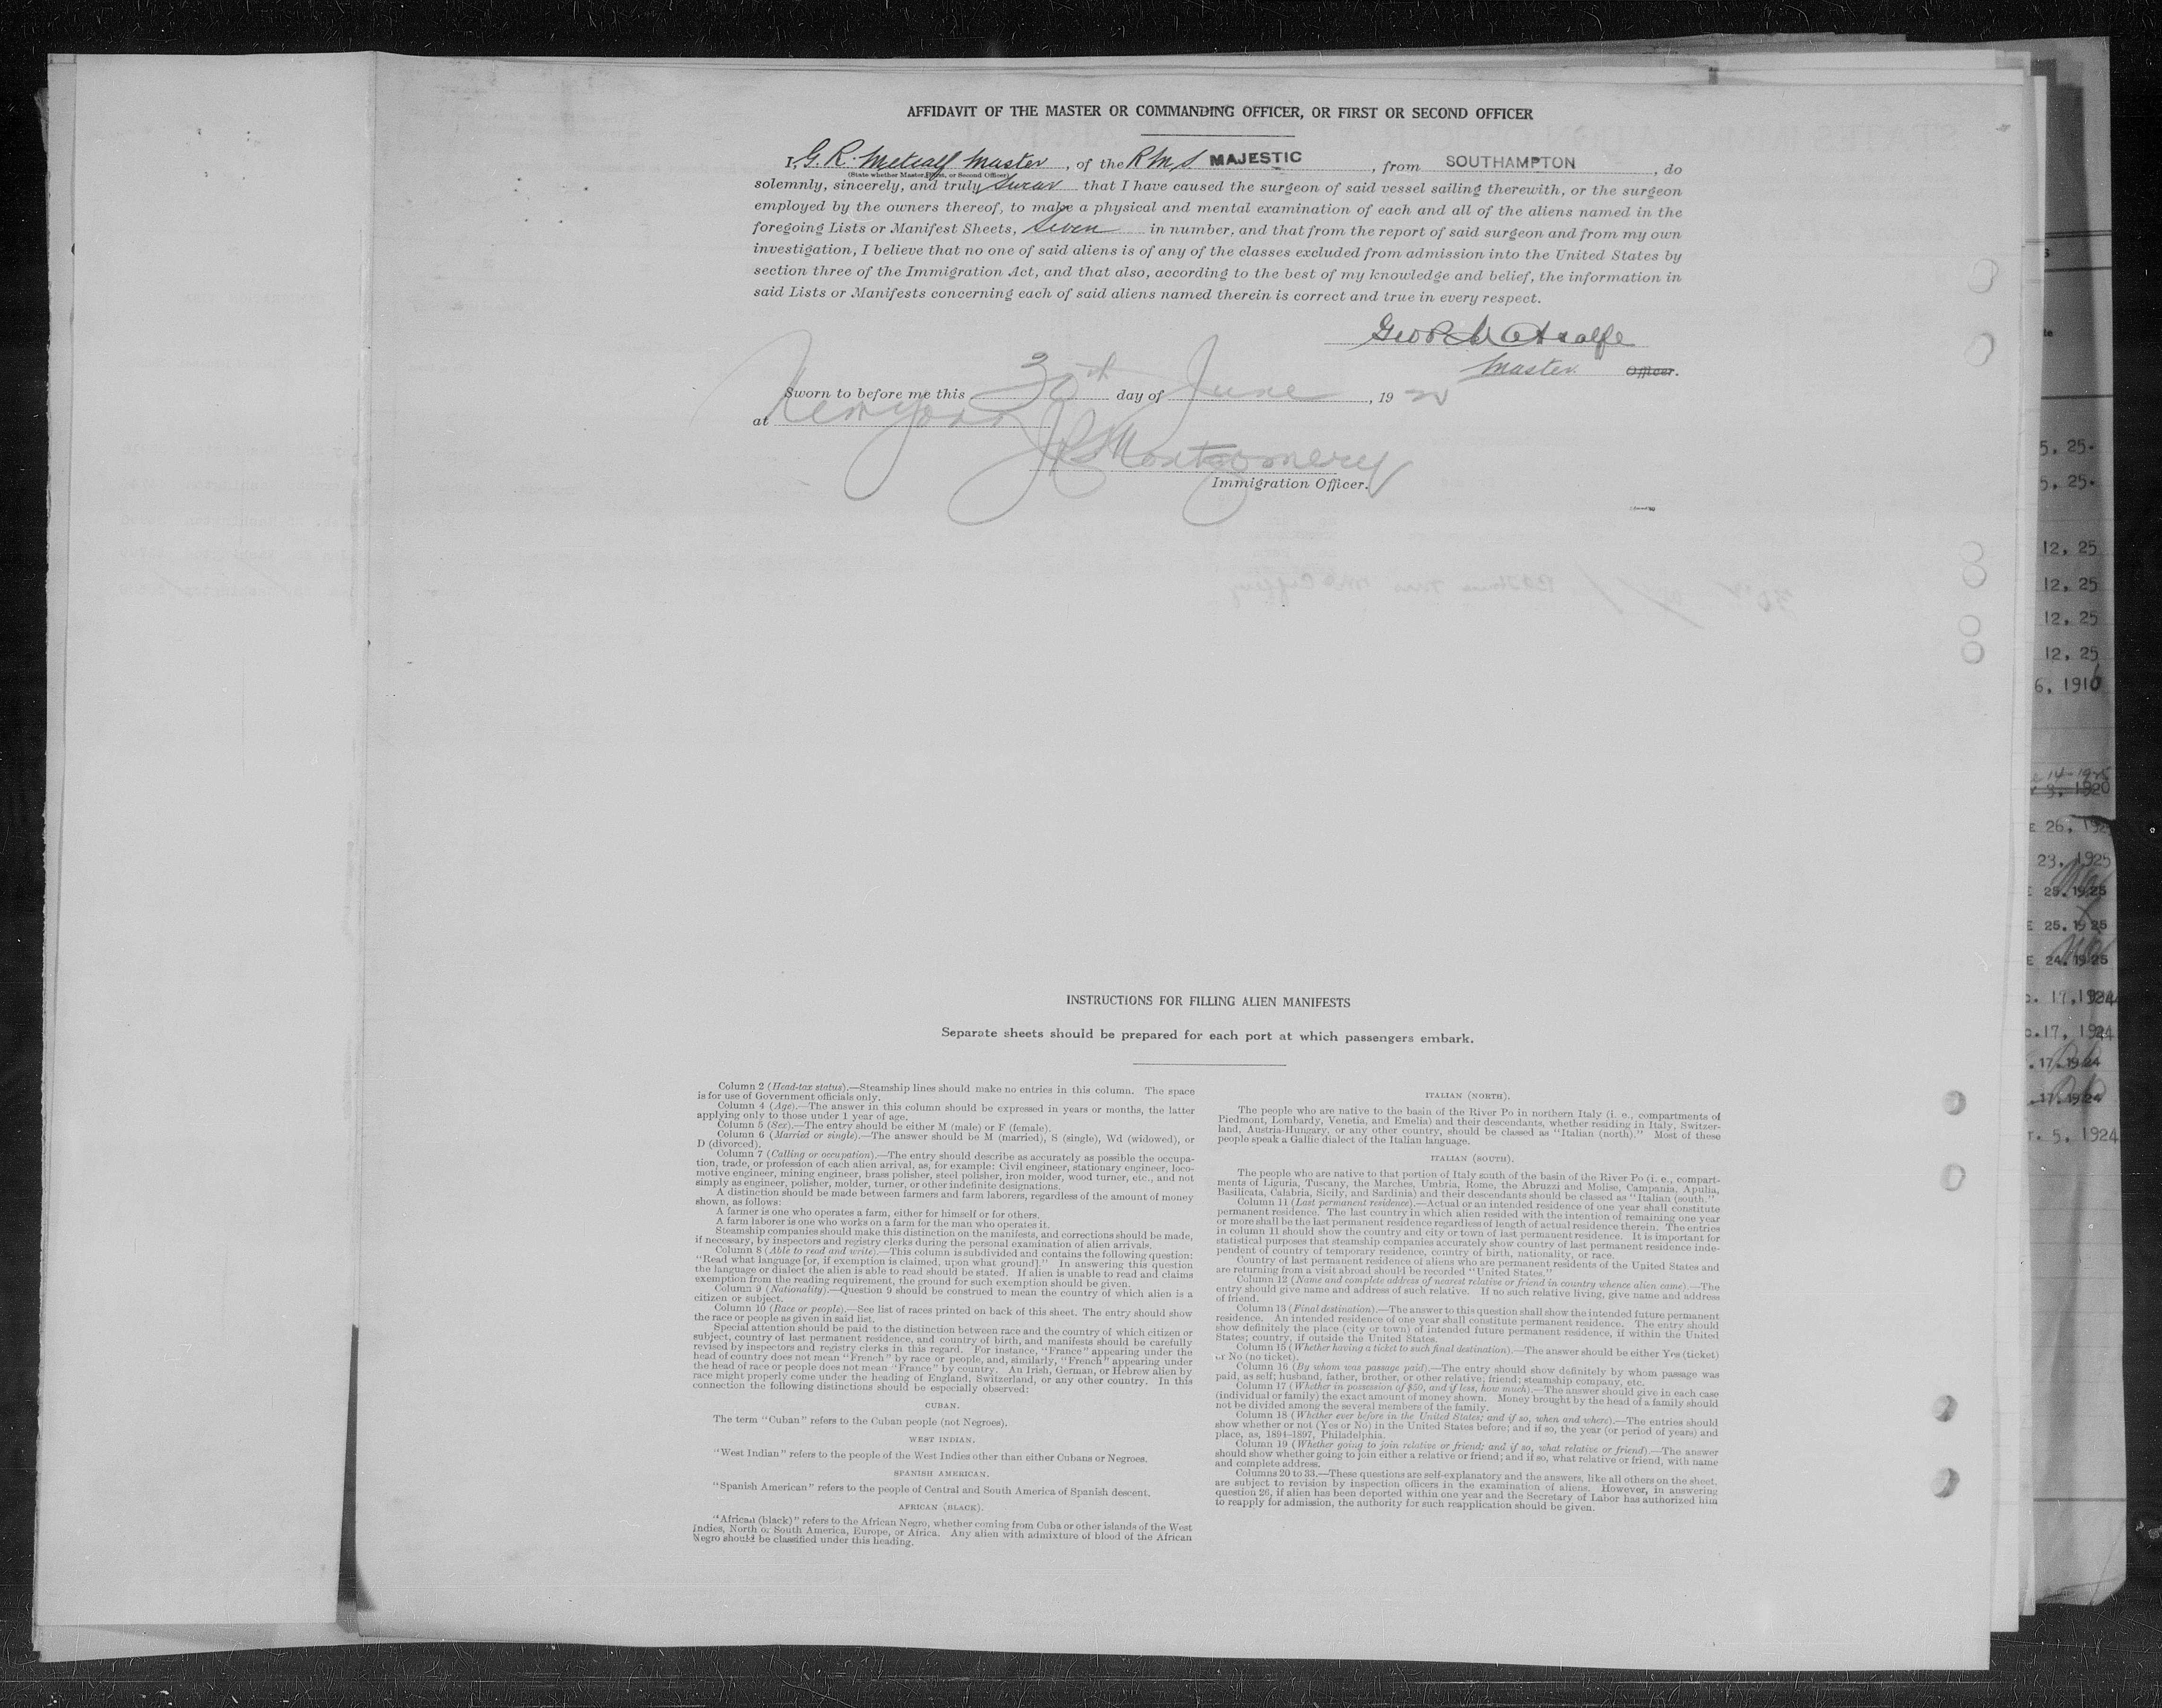 AFFIDAVIT OF THE MASTER OR COMMANDING OFFICER, OR FIRST OR SECOND OFFICER
I, G. R. Metcalf Master, of the R.M.S MAJESTIC, from SOUTHAMPTON, do
(State whether Master, First, or Second Officer)
solemnly, sincerely, and truly swear that I have caused the surgeon of said vessel sailing therewith, or the surgeon
employed by the owners thereof, to make a physical and mental examination of each and all of the aliens named in the
foregoing Lists or Manifest Sheets, seven in number, and that from the report of said surgeon and from my own
investigation, I believe that no one of said aliens is of any of the classes excluded from admission into the United States by
section three of the Immigration Act, and that also, according to the best of my knowledge and belief, the information in
said Lists or Manifests concerning each of said aliens named therein is correct and true in every respect.
Geo R Metcalfe
Master Officer.
Sworn to before me this 30th day of June, 19
at New York
Montgomery
Immigration Officer.
5. 25.
5. 25.
12, 25
12, 25
12, 25
12, 25
6, 1910
26, 192
23, 1925
E 25.1925
E 25.1925
E 24.1925
17,1924
17, 1924
.17.1924
.17.1924
5. 1924
INSTRUCTIONS FOR FILLING ALIEN MANIFESTS
Separate sheets should be prepared for each port at which passengers embark.
Column 2 (Head-tax status).—Steamship lines should make no entries in this column. The space
is for use of Government officials only.
Column 4 (Age).—The answer in this column should be expressed in years or months, the latter
applying only to those under 1 year of age.
Column 5 (Sex).—The entry should be either M (male) or F (female).
Column 6 (Married or single).—The answer should be M (married), S (single), Wd (widowed), or
D (divorced).
Column 7 (Calling or occupation).—The entry should describe as accurately as possible the occupa-
tion, trade, or profession of each alien arrival, as, for example: Civil engineer, stationary engineer, loco-
motive engineer, mining engineer, brass polisher, steel polisher, iron molder, wood turner, etc., and not
simply as engineer, polisher, molder, turner, or other indefinite designations.
A distinction should be made between farmers and farm laborers, regardless of the amount of money
shown, as follows:
A farmer is one who operates a farm, either for himself or for others.
A farm laborer is one who works on a farm for the man who operates it.
Steamship companies should make this distinction on the manifests, and corrections should be made,
if necessary, by inspectors and registry clerks during the personal examination of alien arrivals.
Column 8 (Able to read and write).—This column is subdivided and contains the following question:
"Read what language [or, if exemption is claimed, upon what ground]." In answering this question
the language or dialect the alien is able to read should be stated. If alien is unable to read and claims
exemption from the reading requirement, the ground for such exemption should be given.
Column 9 (Nationality).—Question 9 should be construed to mean the country of which alien is a
citizen or subject.
Column 10 (Race or people).—See list of races printed on back of this sheet. The entry should show
the race or people as given in said list.
Special attention should be paid to the distinction between race and the country of which citizen or
subject, country of last permanent residence, and country of birth, and manifests should be carefully
revised by inspectors and registry clerks in this regard. For instance, "France" appearing under the
head of country does not mean "French" by race or people, and, similarly, "French" appearing under
the head of race or people does not mean "France" by country. An Irish, German, or Hebrew alien by
race might properly come under the heading of England, Switzerland, or any other country. In this
connection the following distinctions should be especially observed:
CUBAN.
The term "Cuban" refers to the Cuban people (not Negroes).
WEST INDIAN.
"West Indian" refers to the people of the West Indies other than either Cubans or Negroes.
SPANISH AMERICAN.
"Spanish American" refers to the people of Central and South America of Spanish descent.
AFRICAN (BLACK).
"African (black)" refers to the African Negro, whether coming from Cuba or other islands of the West
Indies, North or South America, Europe, or Africa. Any alien with admixture of blood of the African
Negro should be classified under this heading.
ITALIAN (NORTH).
The people who are native to the basin of the River Po in northern Italy (i. e., compartments of
Piedmont, Lombardy, Venetia, and Emelia) and their descendants, whether residing in Italy, Switzer-
land, Austria-Hungary, or any other country, should be classed as "Italian (north)." Most of these
people speak a Gallic dialect of the Italian language.
ITALIAN (SOUTH).
The people who are native to that portion of Italy south of the basin of the River Po (i. e., compart-
ments of Liguria, Tuscany, the Marches, Umbria, Rome, the Abruzzi and Molise, Campania, Apulia,
Basilicata, Calabria, Sicily, and Sardinia) and their descendants should be classed as "Italian (south."
Column 11 (Last permanent residence).—Actual or an intended residence of one year shall constitute
permanent residence. The last country in which alien resided with the intention of remaining one year
or more shall be the last permanent residence regardless of length of actual residence therein. The entries
in column 11 should show the country and city or town of last permanent residence. It is important for
statistical purposes that steamship companies accurately show country of last permanent residence inde-
pendent of country of temporary residence, country of birth, nationality, or race.
Country of last permanent residence of aliens who are permanent residents of the United States and
are returning from a visit abroad should be recorded "United States."
Column 12 (Name and complete address of nearest relative or friend in country whence alien came).—The
entry should give name and address of such relative. If no such relative living, give name and address
of friend.
Column 13 (Final destination).—The answer to this question shall show the intended future permanent
residence. An intended residence of one year shall constitute permanent residence. The entry should
show definitely the place (city or town) of intended future permanent residence, if within the United
States; country, if outside the United States.
Column 15 (Whether having a ticket to such final destination).—The answer should be either Yes (ticket)
or No (no ticket).
Column 16 (By whom was passage paid).—The entry should show definitely by whom passage was
paid, as self; husband, father, brother, or other relative; friend; steamship company, etc.
Column 17 (Whether in possession of $50, and if less, how much).—The answer should give in each case
(individual or family) the exact amount of money shown. Money brought by the head of a family should
not be divided among the several members of the family.
Column 18 (Whether ever before in the United States; and if so, when and where).—The entries should
show whether or not (Yes or No) in the United States before; and if so, the year (or period of years) and
place, as, 1894–1897, Philadelphia.
Column 19 (Whether going to join relative or friend; and if so, what relative or friend).—The answer
should show whether going to join either a relative or friend; and if so, what relative or friend, with name
and complete address.
Columns 20 to 33.—These questions are self-explanatory and the answers, like all others on the sheet,
are subject to revision by inspection officers in the examination of aliens. However, in answering
question 26, if alien has been deported within one year and the Secretary of Labor has authorized him
to reapply for admission, the authority for such reapplication should be given.